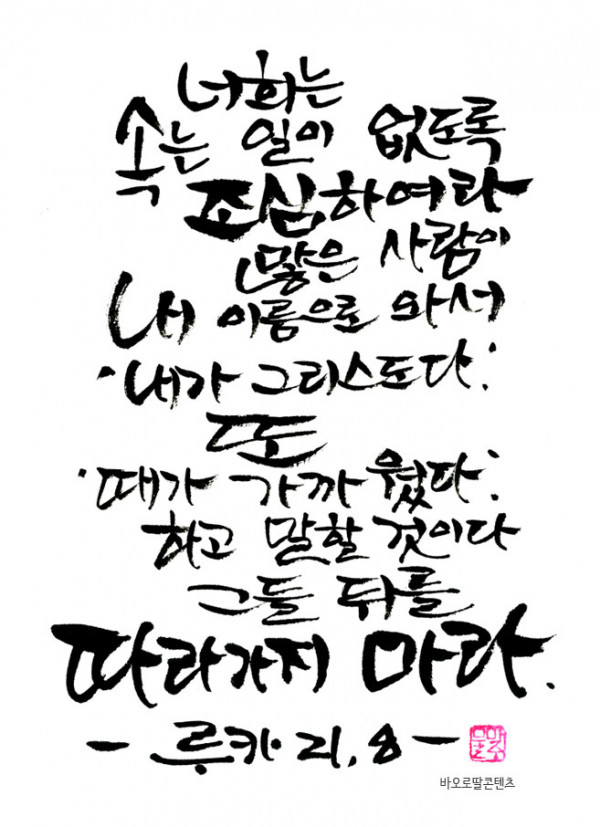 너희는
속는 일이 없도록
조심하여라
많은 사람이
내 이름으로 와서
'내가 그리스도다.'
또
'때가 가까웠다.'
하고 말할 것이다
그들 뒤를
따라가지 마라.
- 루카 21, 8 -
바오로딸콘텐츠